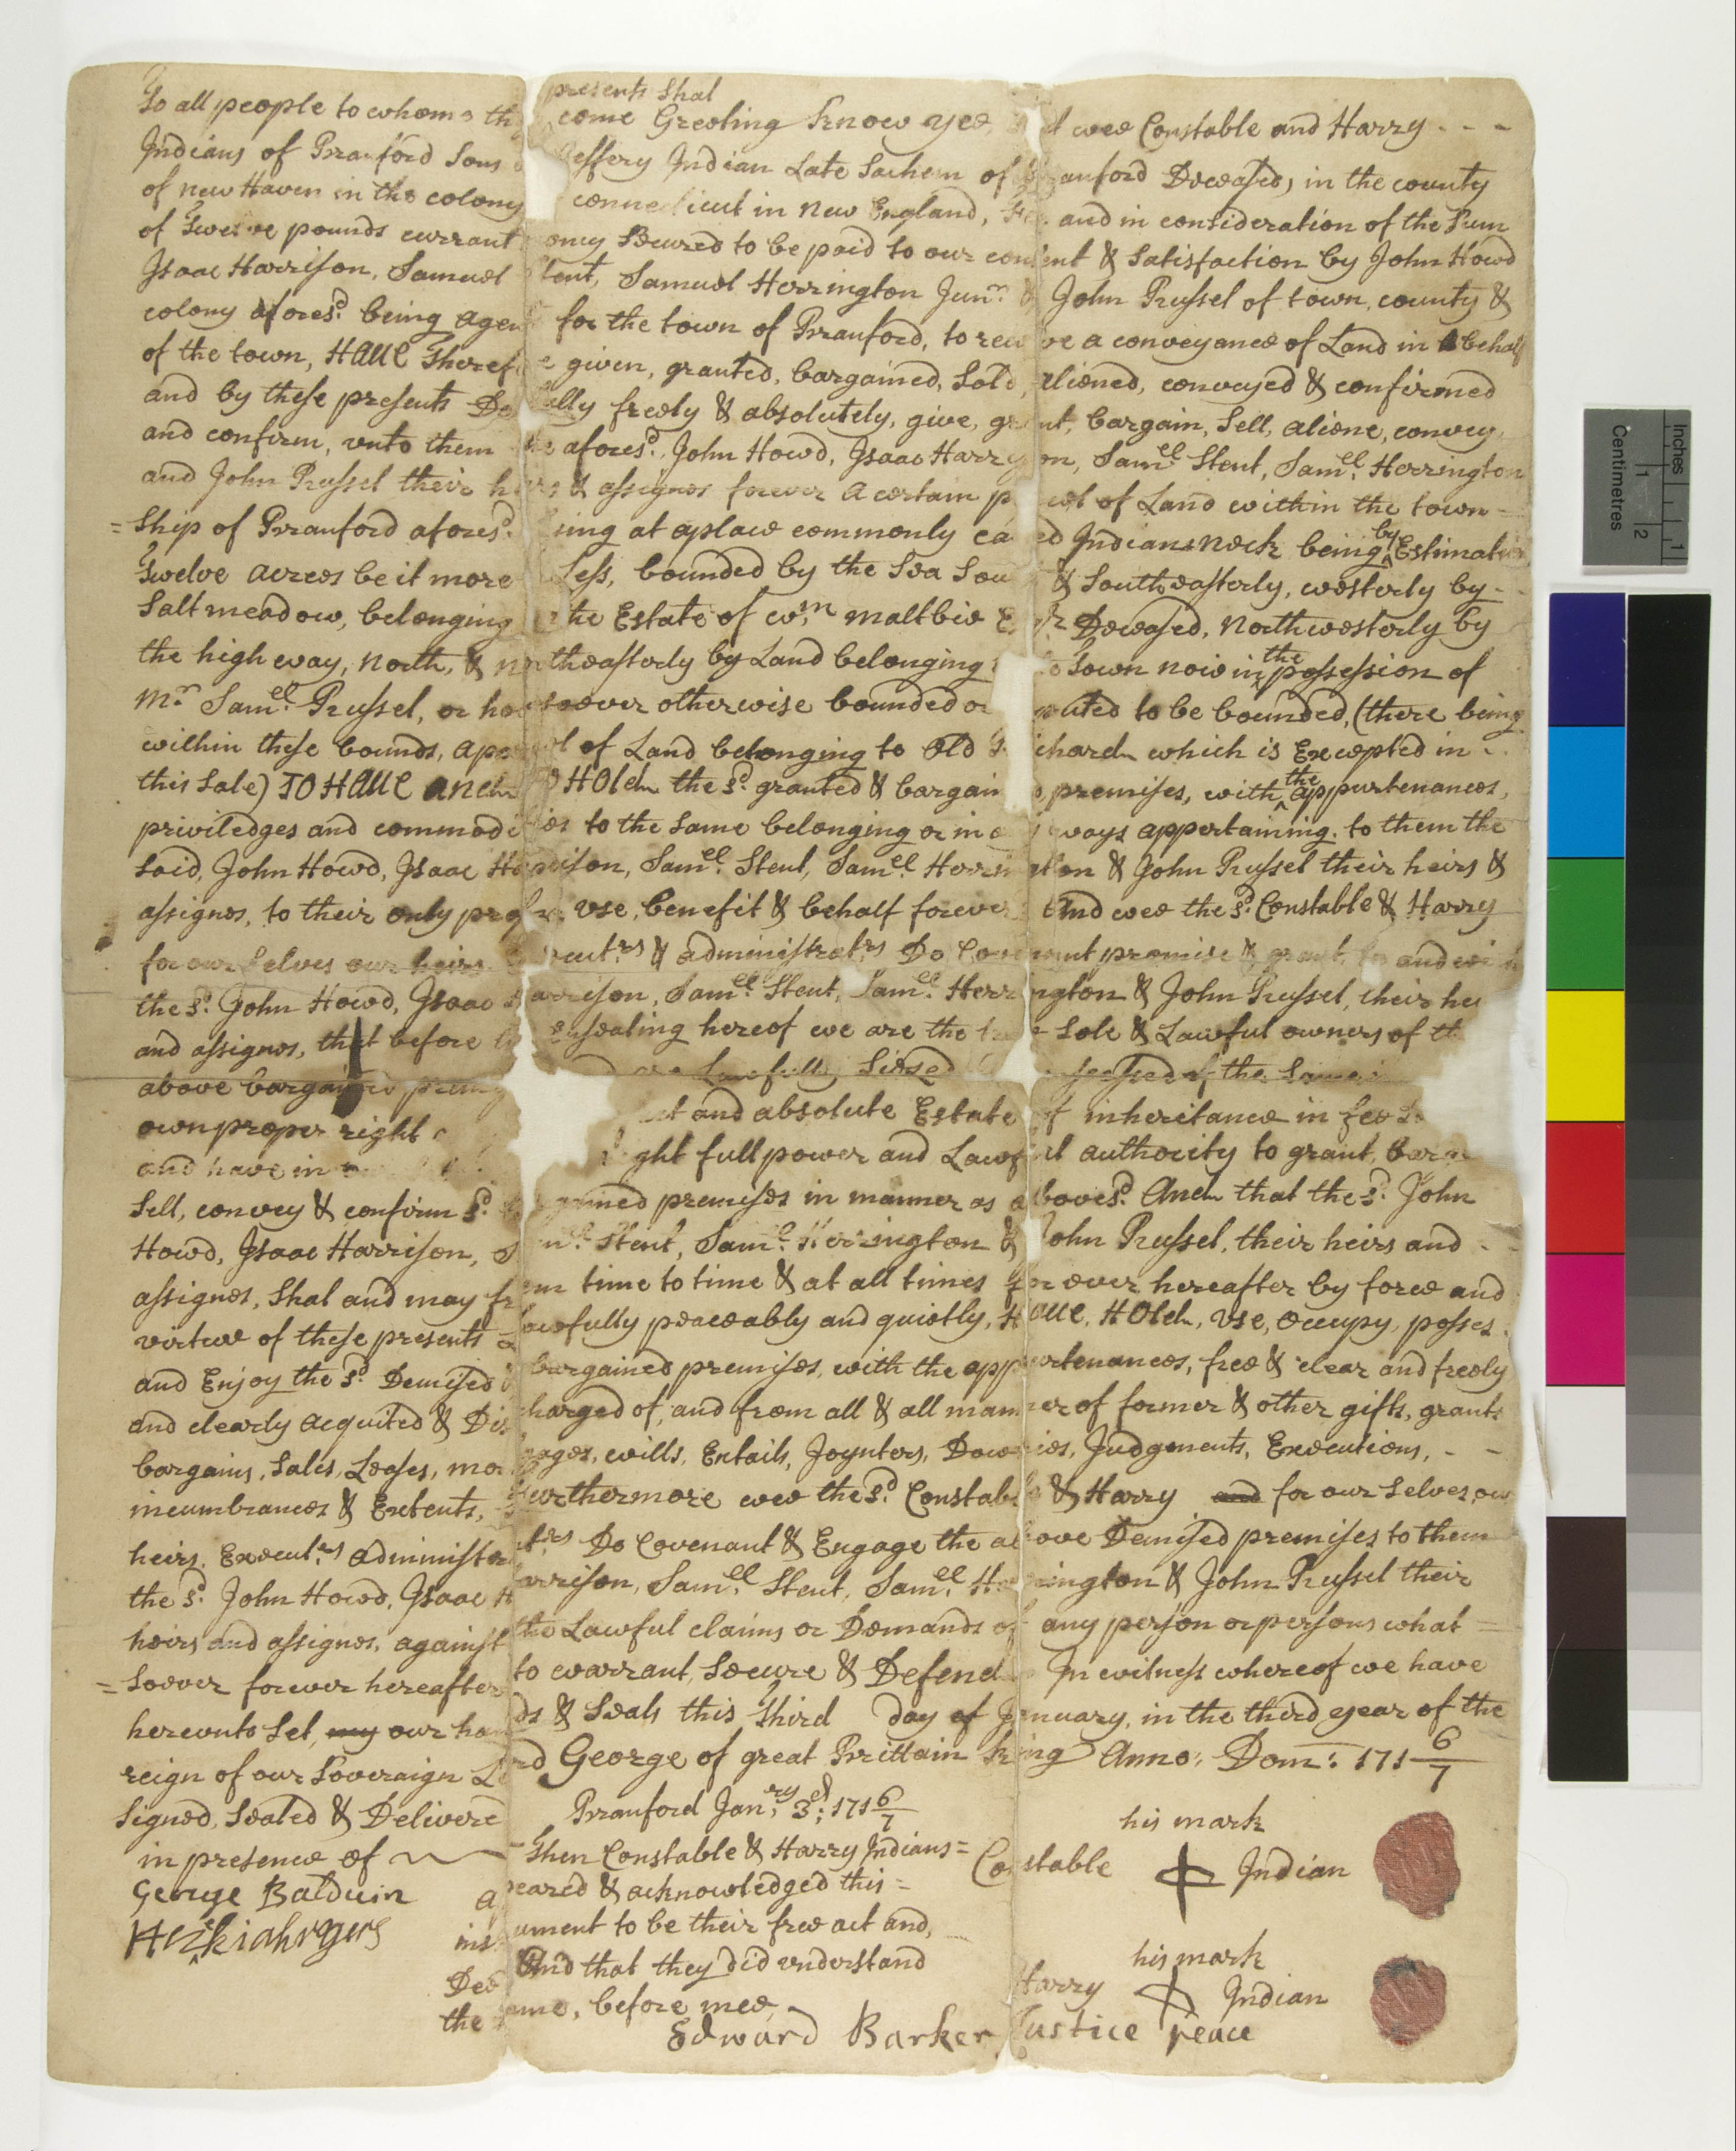 presents shal
To all people to whom th come Greeting Know yee, t wee Constable and Harry - - -
Indians of Branford Sons Jeffery Indian Late Sachem of Branford Deceased, in the county
of new Haven in the colony connecticut in New England, and in consideration of the Sum
of Twelve pounds currant mony Secured to be paid to our content & Satisfaction by John Howd
Isaac Harrison, Samuel Stent, Samuel Herrington Junr & John Russel of town, county &
colony aforesd. being agen for the town of Branford, to receive a conveyance of Land in behalf
of the town, HAUE Therefore given, granted, bargained, Sold, aliened, conveyed & confirmed
and by these presents Do fully freely & absolutely, give, grant, bargain, Sell, aliene, convey
and confirm, vnto them the aforesd. John Howd, Isaac Harryson, Samell. Stent, Samell. Herrington
and John Russel their heirs & assignes forever a certain p cel of Land within the town=
=Ship of Branford aforesd. lying at a place commonly ca ed Indians neck being by Estimation
Twelve acres be it more Less, bounded by the Sea Sou & Southeasterly, westerly by -
Salt meadow, belonging the Estate of wm. maltbie E qr Deceased, Northwesterly by
the high way, North, & northeasterly by Land belonging to Town now in the possession of
Mr Samell. Russel, or howsoever otherwise bounded or puted to be bounded, (there being
within these bounds, a percel of Land belonging to Old Richard which is Excepted in -
this Sale) TO HAUE and TO HOLD the sd. granted & bargain d premises, with the appurtenances,
priviledges and commodities to the Same belonging or in a ways appertaining. to them the
said, John Howd, Isaac Harrison, Samell. Stent, Samell. Herrington & John Russel their heirs &
assignes, to their only proper use, benefit & behalf forever And wee the sd. Constable & Harry
for our Selves our heirs Executrs & administratrs Do Covenant promise & grant, to and with
the sd. John Howd, Isaac Harrison, Samell. Stent, Samell. Herrington & John Russel, their hei
and assignes, that before Ensealing hereof we are the true Sole & Lawful owners of th
above bargained prem and are Lawfully Siezed possessed of the Same in
own proper right ct and absolute Estate of inheritance in fee
and have in ght full power and Lawful authority to grant, barg
Sell, convey & confirm sd. bargained premises in manner as abovesd. And that the sd. John
Howd, Isaac Harrison, Samll. Stent, Saml. Herrington & John Russel, their heirs and - -
assignes, Shal and may from time to time & at all times for ever hereafter by force and
vertue of these presents Lawfully peaceably and quietly, HAUE, HOLD, Use, occupy, posses
and Enjoy the sd. Demised bargained premises, with the appurtenances, free & clear and freely
and clearly acquited & Discharged of, and from all & all manner of former & other gifts, grants
bargains, Sales, Leases, mortgages, wills, Entails, Joynters, Dowries, Judgements, Executions, - -
incumbrances & Extents, Furthermore wee the sd. Constable & Harry and for our Selves, our
heirs, Executrs administratrs Do Covenant & Engage the above Demised premises to them
the sd. John Howd, Isaac Harrison, Samell. Stent, Samell. Herrington & John Russel their
heirs and assignes, against the Lawful claims or Demands of any person or persons what =
= Soever forever hereafter to warrant, Secure & Defend In witness whereof we have
herevnto Set, my our hands & Seals this Third day of January, in the third year of the
reign of our Soveraign Lord George of great Brittain King Anno: Dom: 171 6/7
Signed, Sealed & Delivered
in presence of
George Baldwin
Branford Janry 3d: 171 6/7
- Then Constable & Harry Indians =
apeared & acknowledged this =
instrument to be their free act and,
Deed And that they did vnderstand
the Same, before mee,
Edward Barker Justice peace
his mark
Constable Indian
his mark
Harry Indian